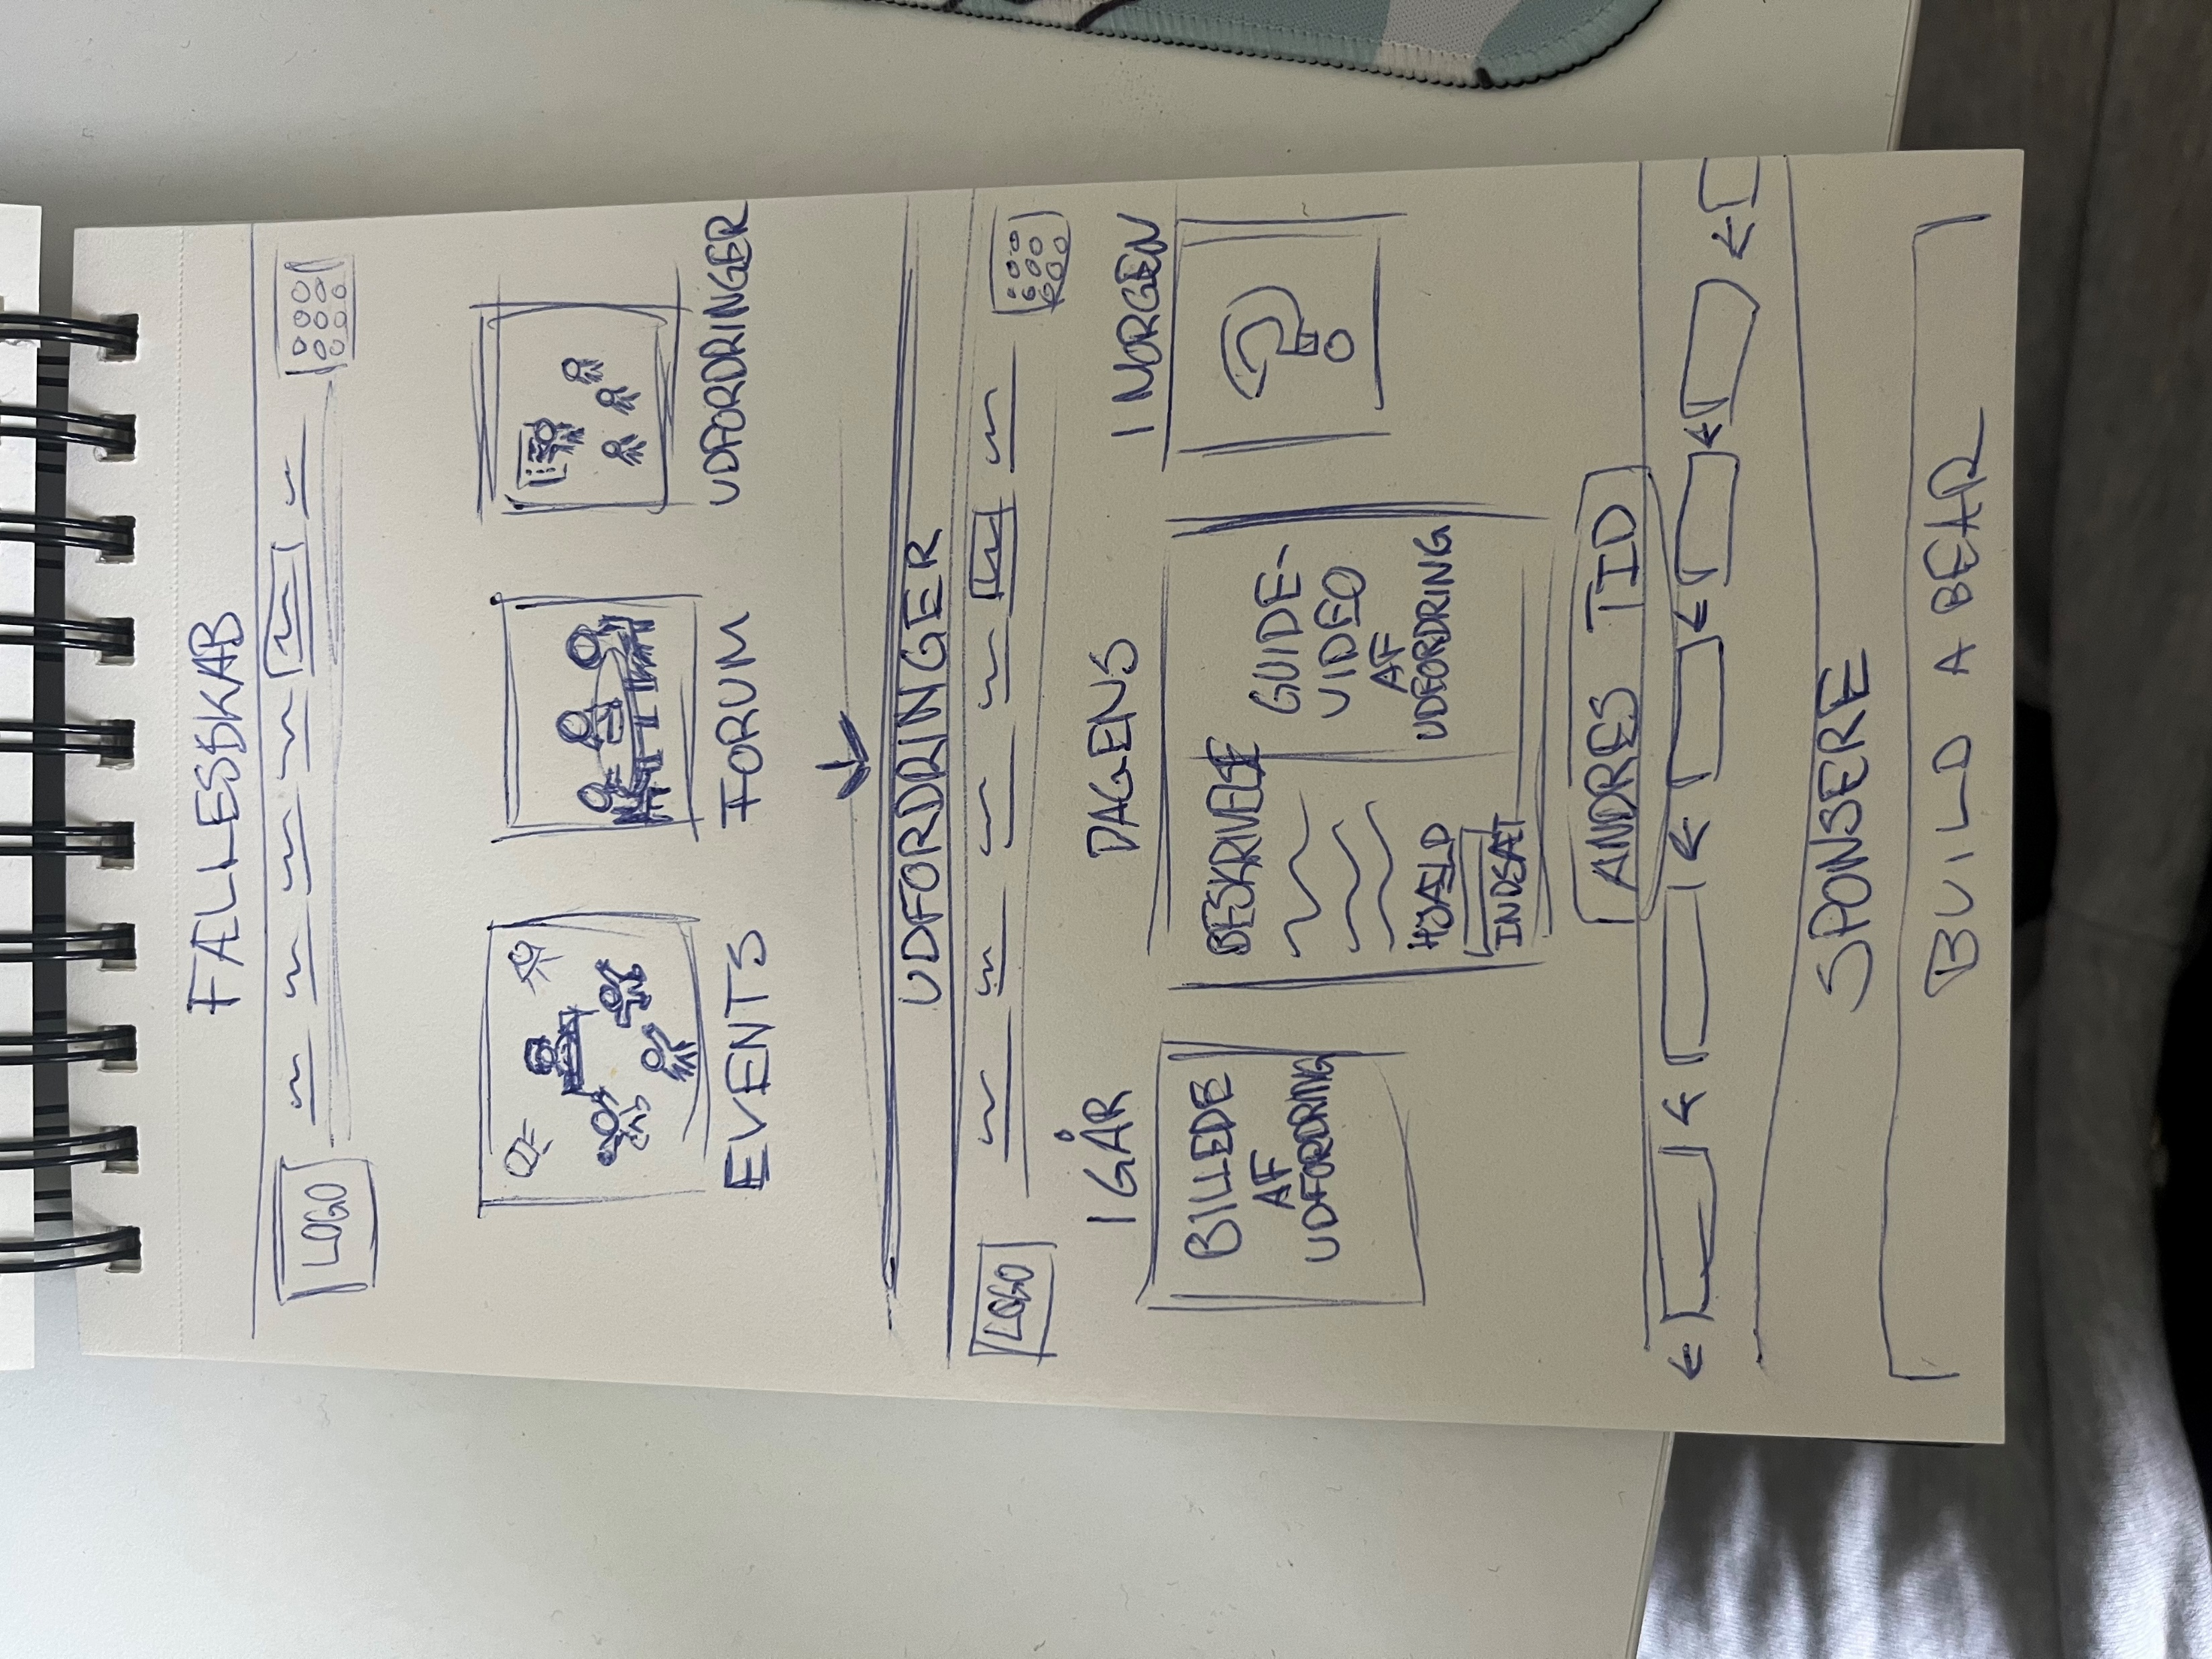 FÆLLESSKAB
LOGO
EVENTS
FORUM
UDFORDRINGER
UDFORDRINGER
LOGO
I GÅR
BILLEDE
AF
UDFORDRING
DAGENS
BESKRIVELSE
INDSÆT
GUIDE-
VIDEO
AF
UDFORDRING
I MORGEN
?
ANDRES TID
SPONSERE
BUILD A BEAR